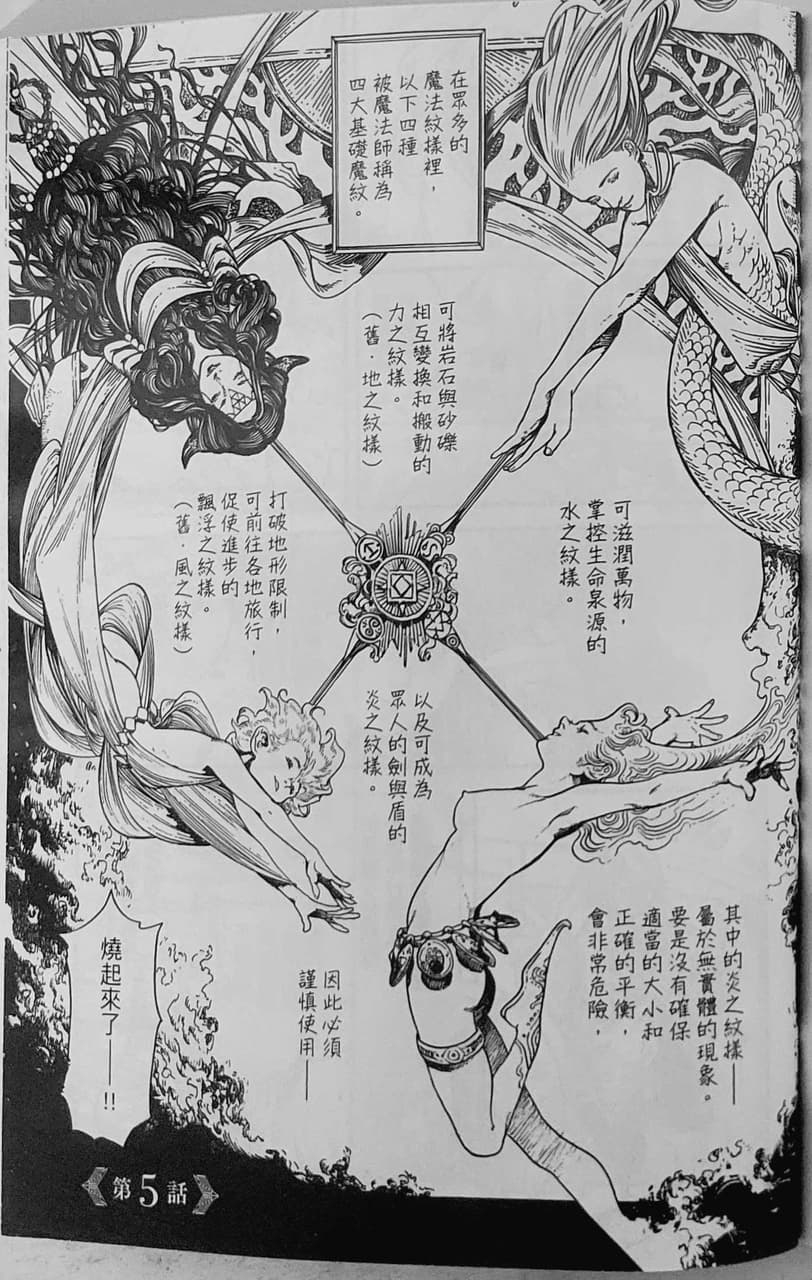 在眾多的
魔法紋樣裡，
以下四種
被魔法師稱為
四大基礎魔紋。
可將岩石與砂礫
相互變換和搬動的
力之紋樣。
（舊．地之紋樣）
可滋潤萬物，
掌控生命泉源的
水之紋樣。
打破地形限制，
可前往各地旅行，
促使進步的
飄浮之紋樣。
（舊．風之紋樣）
以及可成為
眾人的劍與盾的
炎之紋樣。
其中的炎之紋樣——
屬於無實體的現象。
要是沒有確保
適當的大小和
正確的平衡，
會非常危險，
因此必須
謹慎使用——
燒起來了——!!
第5話